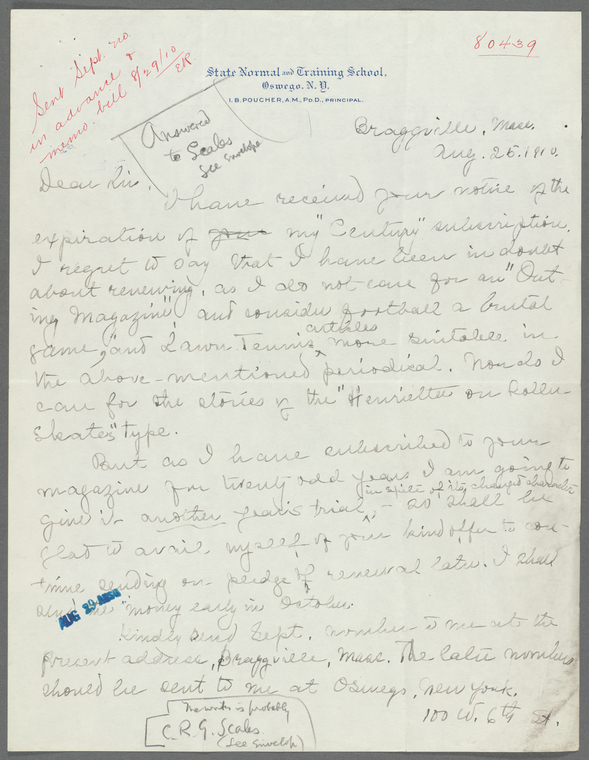 80439
Sent Sept. no.
in advance &
memo. bill 8/29/10
ER
State Normal and Training School,
Oswego, N.Y.
I. B. POUCHER, A.M., PD.D., PRINCIPAL.
Answered
to Scales
See Envelope
Braggville, Mass.
Aug. 25. 1910.
Dear Sir,
I have received your notice of the
expiration of your my "Century" subscription.
I regret to say that I have been in doubt
about renewing, as I do not care for an "Out-
ing Magazine", and consider football a brutal
game, and Lawn Tennis articles more suitable in
the above-mentioned periodical. Nor do I
care for the stories of the "Henrietta on Roller
Skates" type.
But as I have subscribed to your
magazine for twenty odd years I am going to
in spite of its changed character
give it another year's trial, - so shall be
glad to avail myself of your kind offer to con-
tinue sending on pledge of renewal later. I shall
send the money early in October.
AUG 29 REC'D
Kindly send Sept. number to me at the
present address, Braggville, Mass. The later numbers
should be sent to me at Oswego, New York.
100 W. 6th St.
The writer is probably
C. R. G. Scales.
(See Envelop)